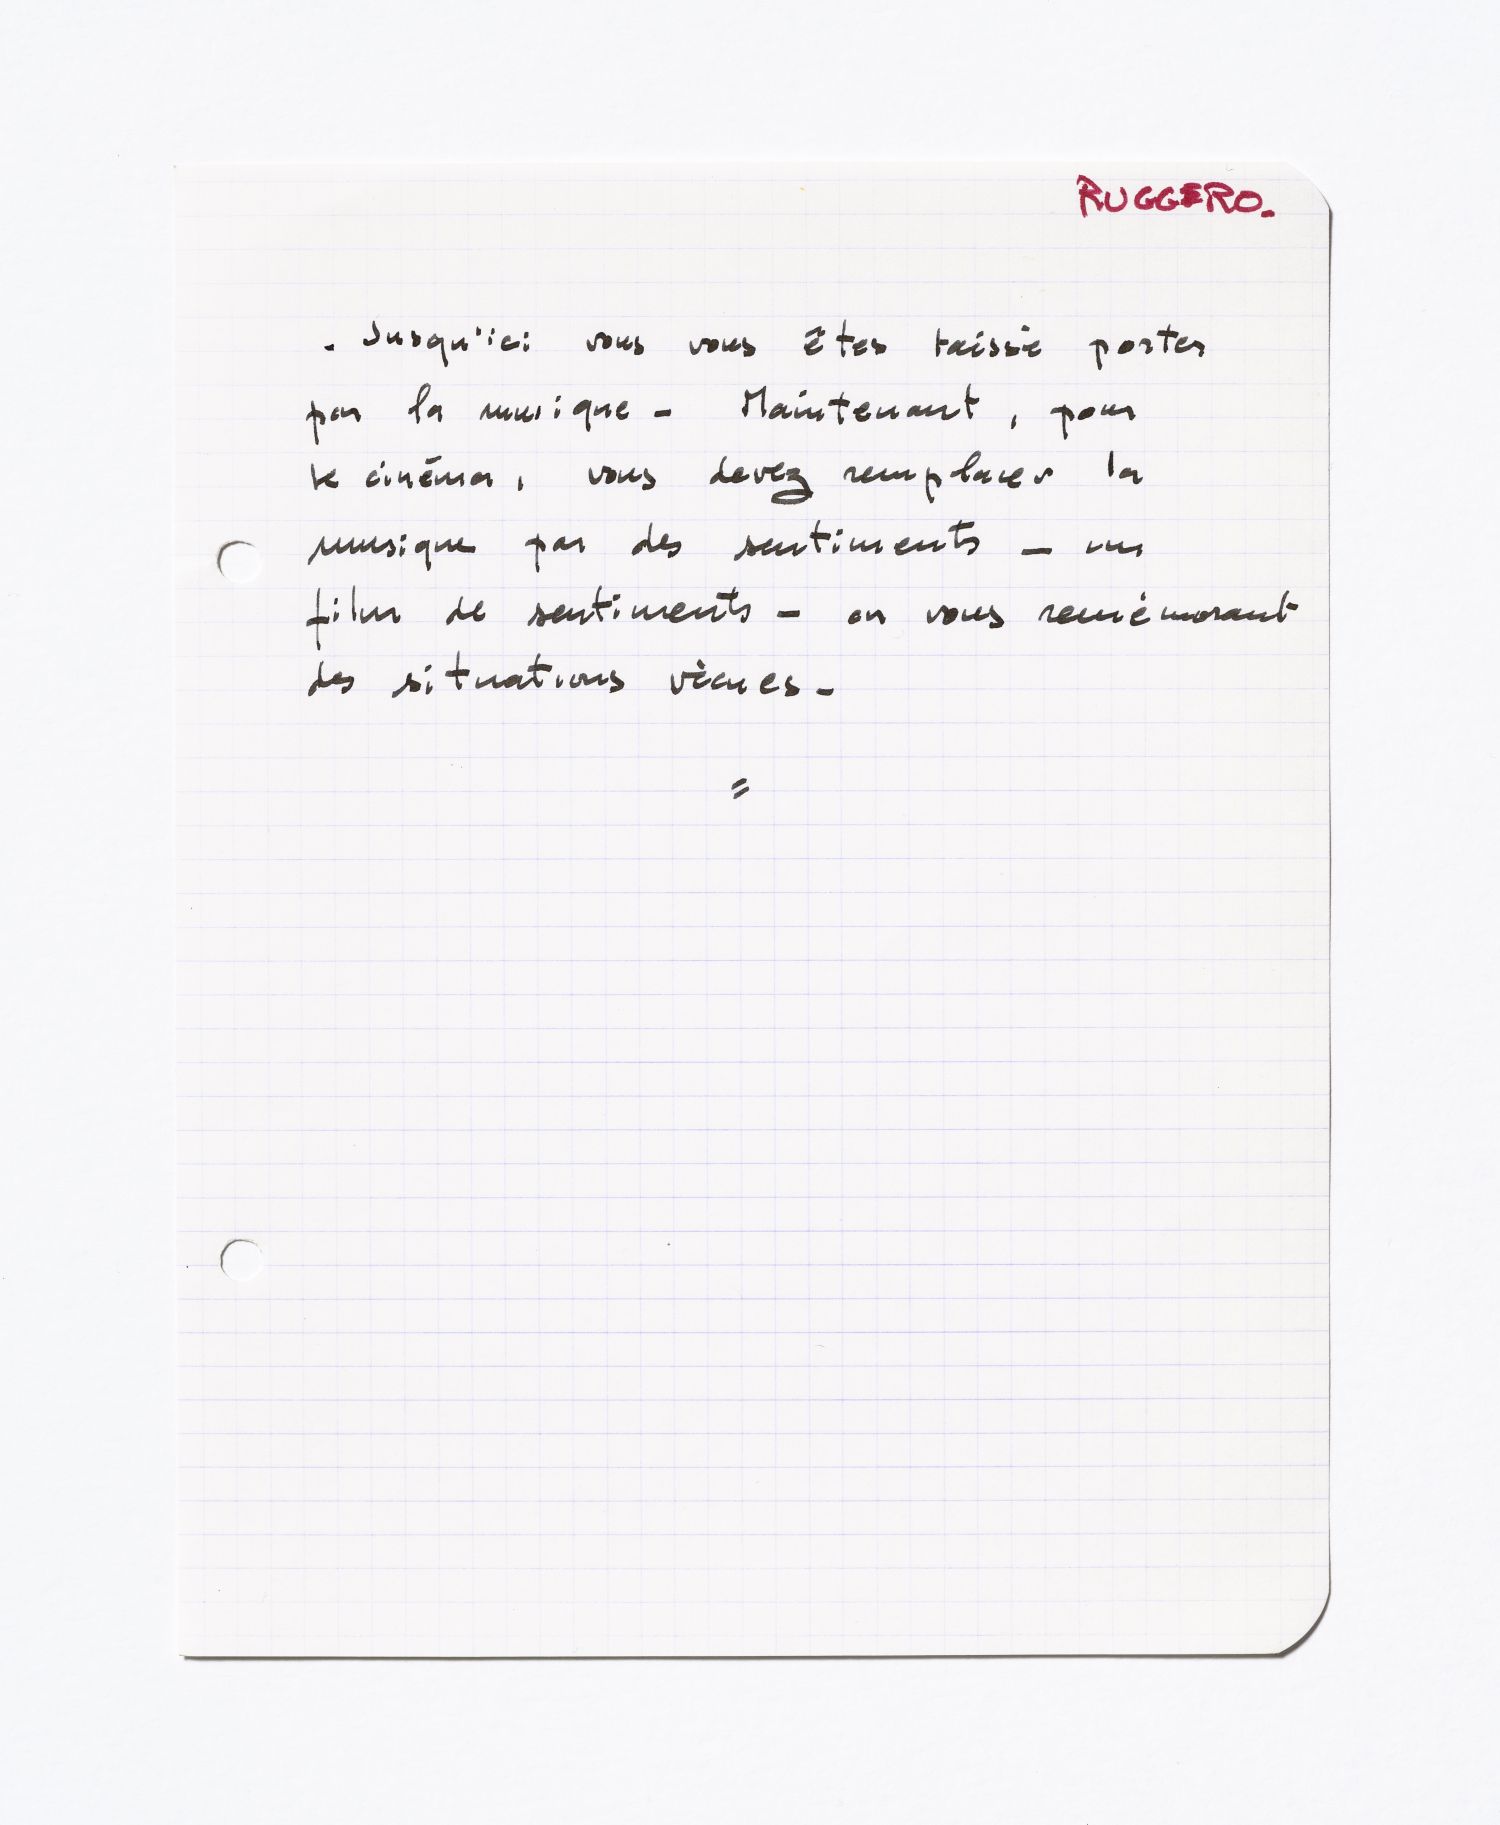 RUGGERO.
. Jusqu'ici vous vous êtes laissé porter
par la musique - Maintenant, pour
le cinéma, vous devez remplacer la
musique par des sentiments - un
film de sentiments - en vous remémorant
des situations vécues -
=